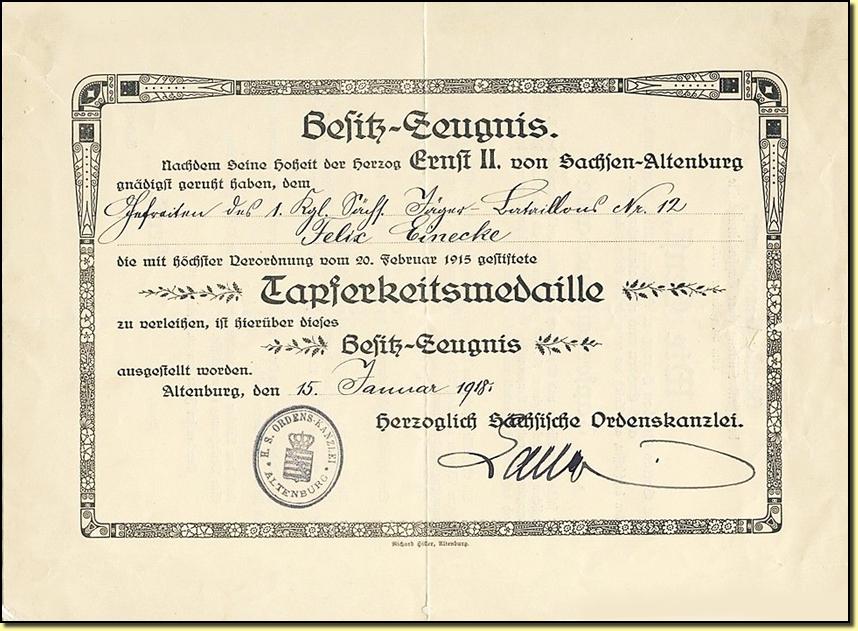 Besitz-Zeugnis.
Nachdem Seine Hoheit der Herzog Ernst II. von Sachsen-Altenburg
gnädigst geruht haben, dem
Gefreiten des 1. Kgl. Sächs. Jäger-Bataillons Nr. 12
Felix Einecke
die mit höchster Verordnung vom 20. Februar 1915 gestiftete
Tapferkeitsmedaille
zu verleihen, ist hierüber dieses
Besitz-Zeugnis
ausgestellt worden.
Altenburg, den 15. Januar 1918.
Herzoglich Sächsische Ordenskanzlei.
H. S. ORDENS-KANZLEI
ALTENBURG
Richard Hiller, Altenburg.